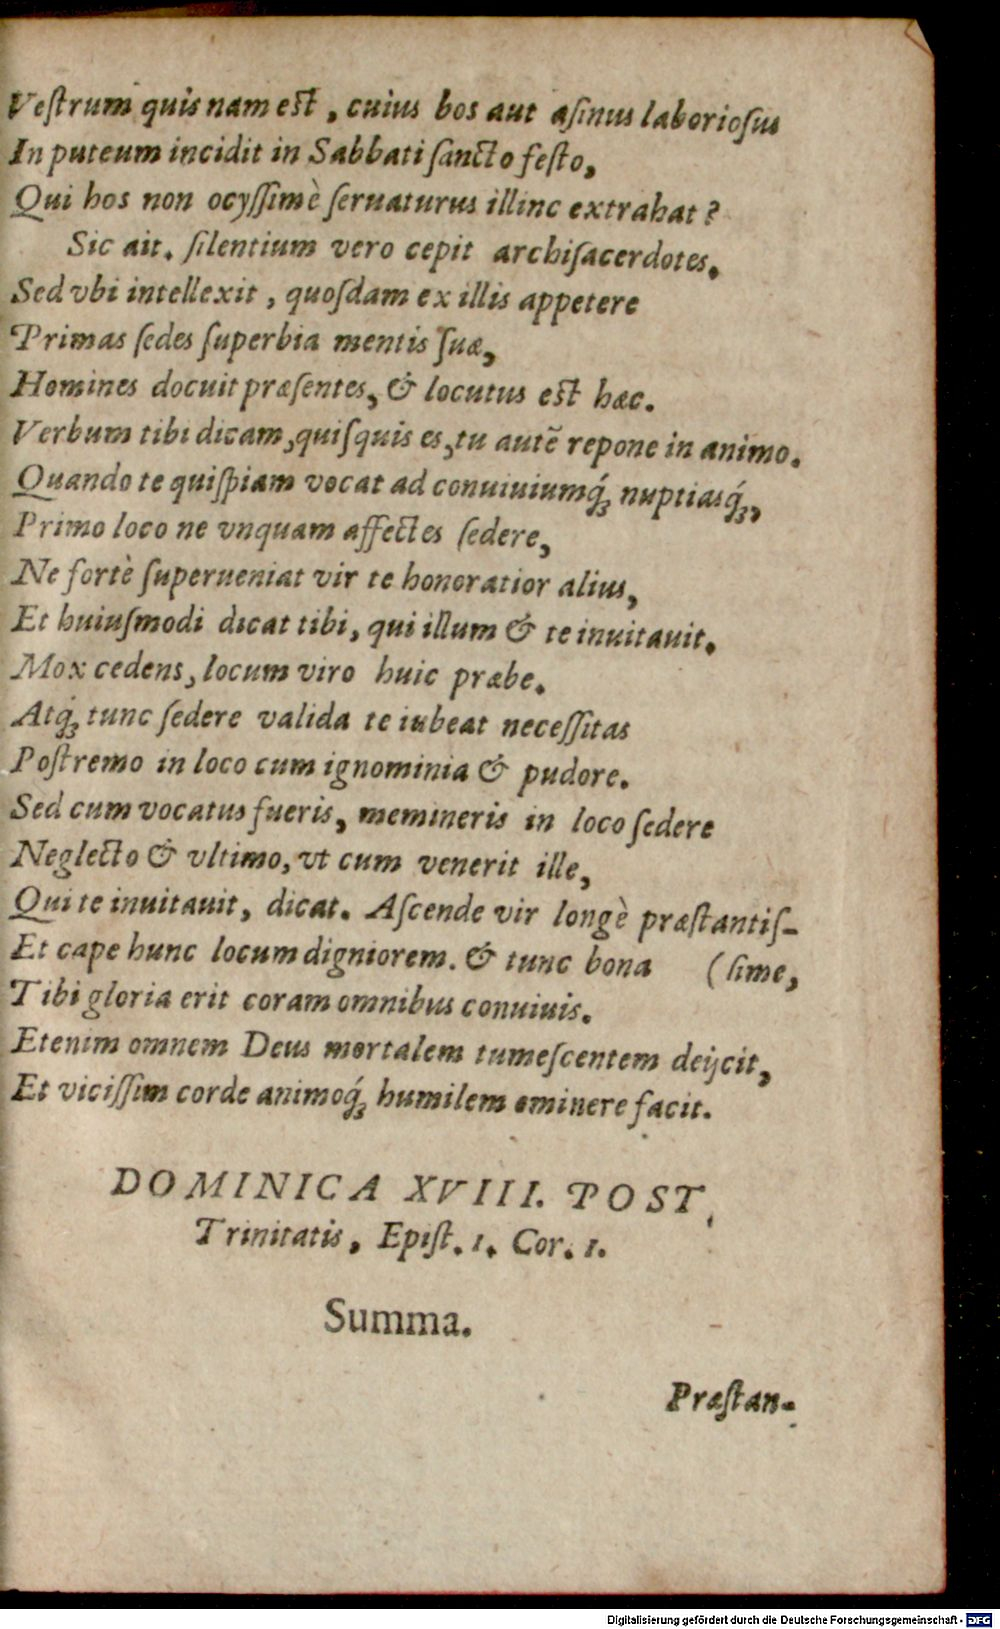 Veſtrum quis nam eſt, cuius bos aut aſinus laborioſus
In puteum incidit in Sabbati ſancto feſto,
Qui hos non ocyſſimè ſeruaturus illinc extrahat?
Sic ait. ſilentium vero cepit archiſacerdotes.
Sed vbi intellexit, quoſdam ex illis appetere
Primas ſedes ſuperbia mentis ſuæ,
Homines docuit præſentes, & locutus est hæc.
Verbum tibi dicam, quiſquis es, tu autẽ repone in animo.
Quando te quiſpiam vocat ad conuiuiumq́; nuptiasq́;,
Primo loco ne vnquam affectes ſedere,
Ne fortè ſuperueniat vir te honoratior alius,
Et huiuſmodi dicat tibi, qui illum & te inuitauit.
Mox cedens, locum viro huic præbe.
Atq́; tunc ſedere valida te iubeat neceſſitas
Poſtremo in loco cum ignominia & pudore.
Sed cum vocatus fueris, memineris in loco ſedere
Neglecto & vltimo, vt cum venerit ille,
Qui te inuitauit, dicat. Aſcende vir longè præſtantiſ-
Et cape hunc locum digniorem. & tunc bona (ſime,
Tibi gloria erit coram omnibus conuiuis.
Etenim omnem Deus mortalem tumeſcentem deijcit,
Et viciſſim corde animoq́; humilem eminere facit.
DOMINICA XVIII. POST
Trinitatis, Epiſt. 1. Cor. 1.
Summa.
Præſtan-
Digitalisierung gefördert durch die Deutsche Forschungsgemeinschaft - DFG